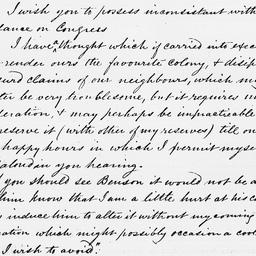 I wish you to possess inconsistent with
dance on Congress
I have thought which if carried into exec
render ours the favourite Colony, & desip
surd claims of our neighbours, which m
ter be very troublesome, but it requires m
deration, & may perhaps be impracticable
reserve it (with other of my reserves) till on
happy hours in which I permit myse
aloud in you hearing.
you should see Benson it would not be a
him know that I am a little hurt at his c
induce him to alter it without my coming
ation which might possibly occasion a cool
I wish to avoid".